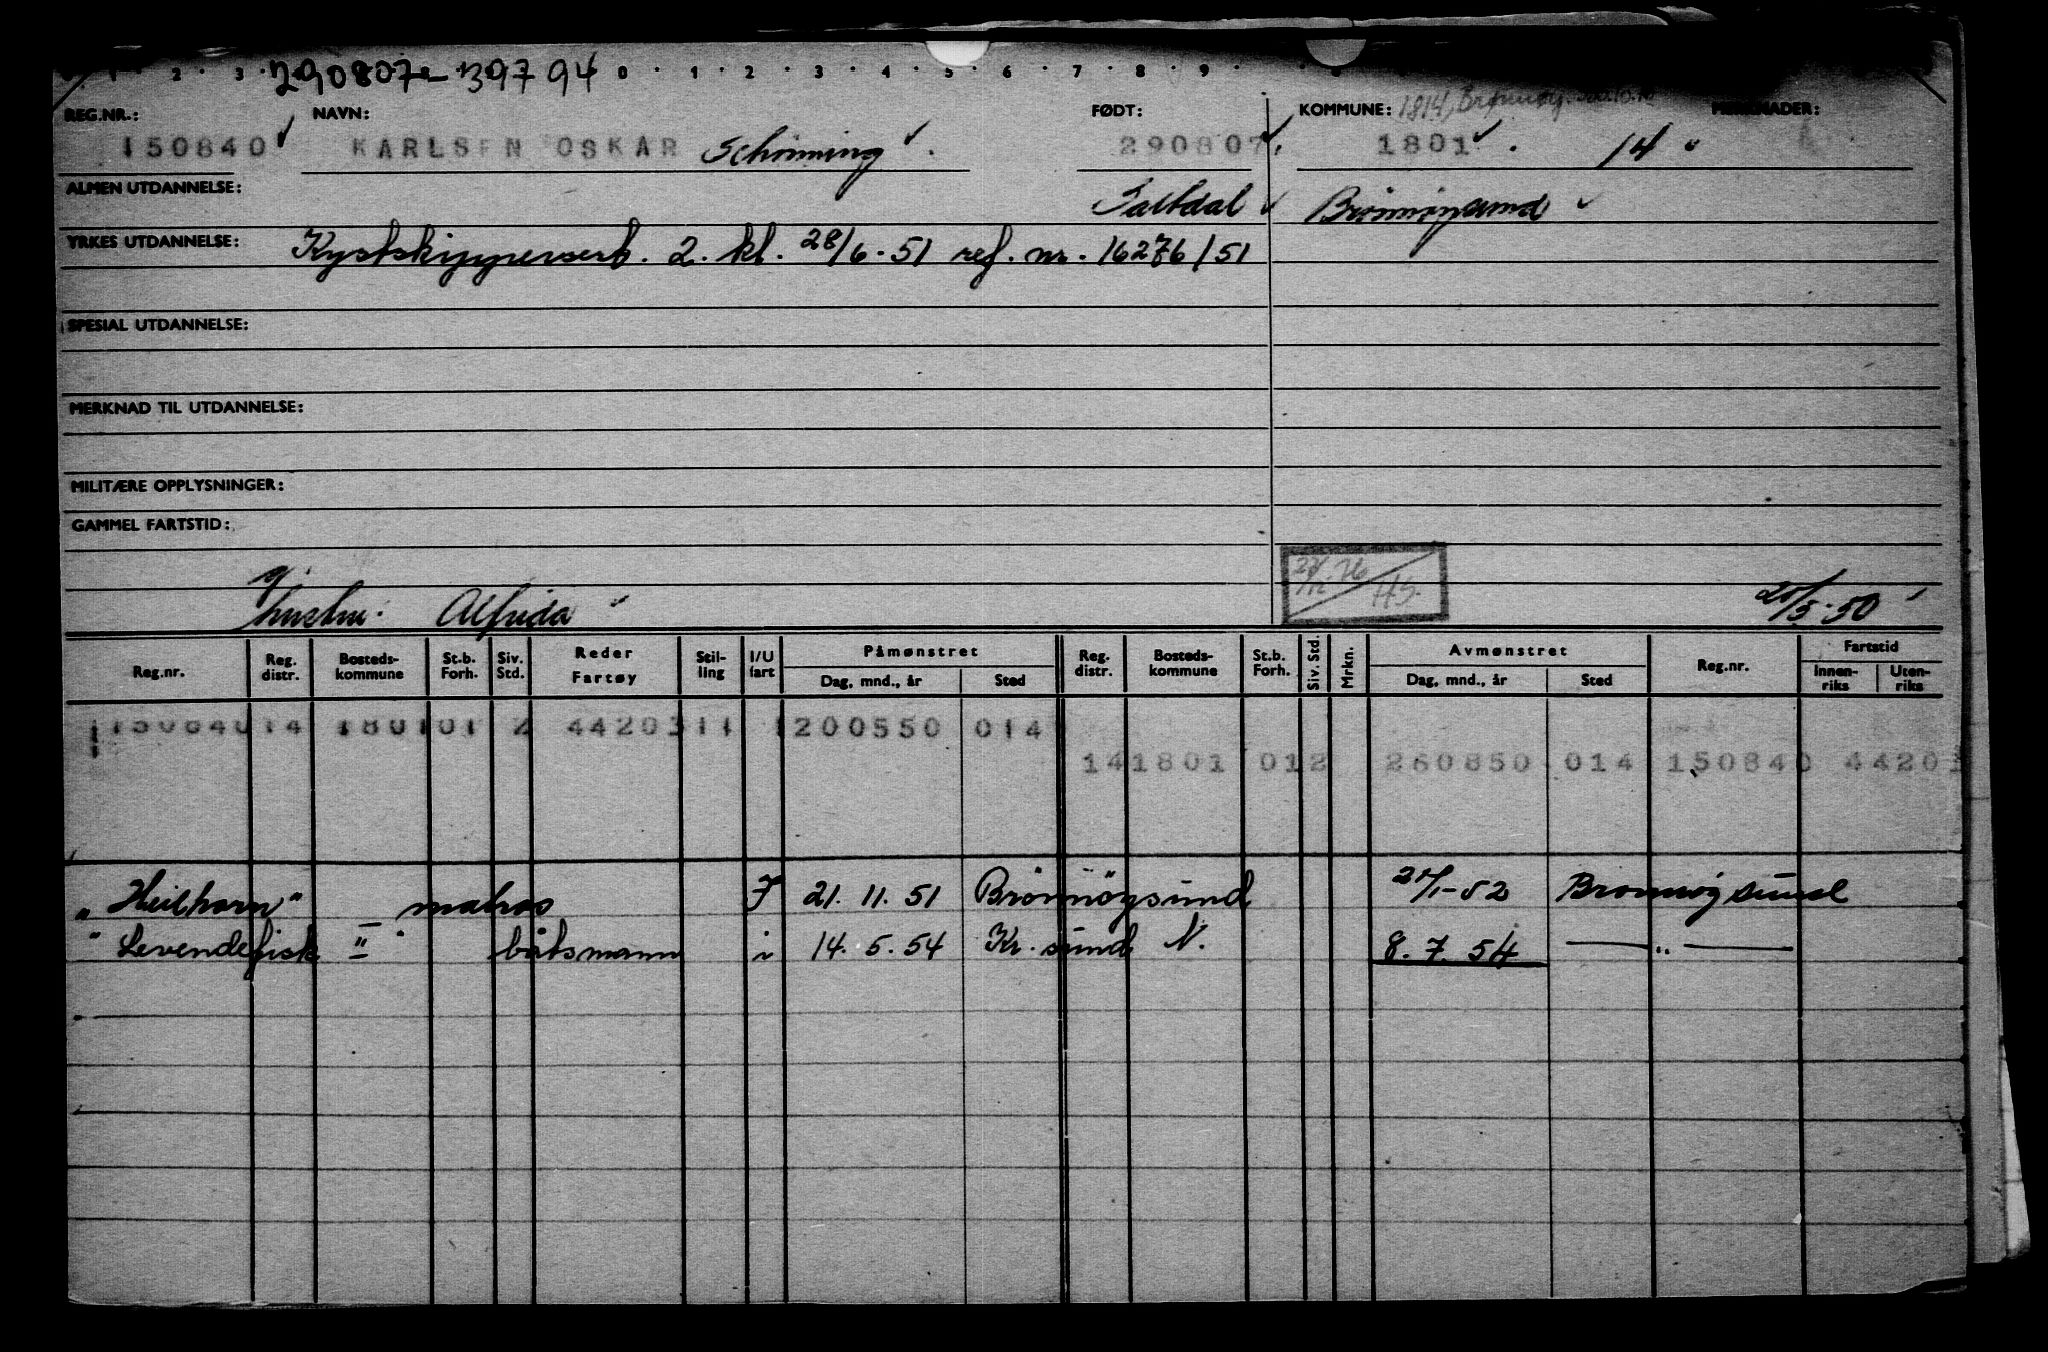 290807 - 39794
REG.NR.: NAVN: FØDT: KOMMUNE: 1814, Brønnøy MERKNADER:
150840 KARLSEN OSKAR Schönning 290807 1801 14
ALMEN UTDANNELSE: Saltdal Brönnöysund
YRKES UTDANNELSE: Kystskippersert. 2. kl. 28/6-51 ref. nr. 16276/51
SPESIAL UTDANNELSE:
MERKNAD TIL UTDANNELSE:
MILITÆRE OPPLYSNINGER:
GAMMEL FARTSTID:
g/hustru: Alfrida HS. 20/5-50
Reg.nr. Reg. distr. Bosteds-kommune St.b. Forh. Siv. Std. Reder Fartøy Stil-ling I/U fart Påmønstret Dag, mnd., år Sted Reg. distr. Bosteds-kommune St.b. Forh. Siv. Std. Mrkn. Avmønstret Dag, mnd., år Sted Reg.nr. Fartstid Innen-riks Uten-riks
150840 14 1801 01 2 44203 11 1 200550 014
14 1801 012 260850 014 150840 44203
"Heilhorn" matros I 21. 11. 51 Brönnöysund 52 Bronnöysund
"Levendefisk II" båtsmann i 14. 5. 54 Kr. sund N. 8. 7. 54 — " —